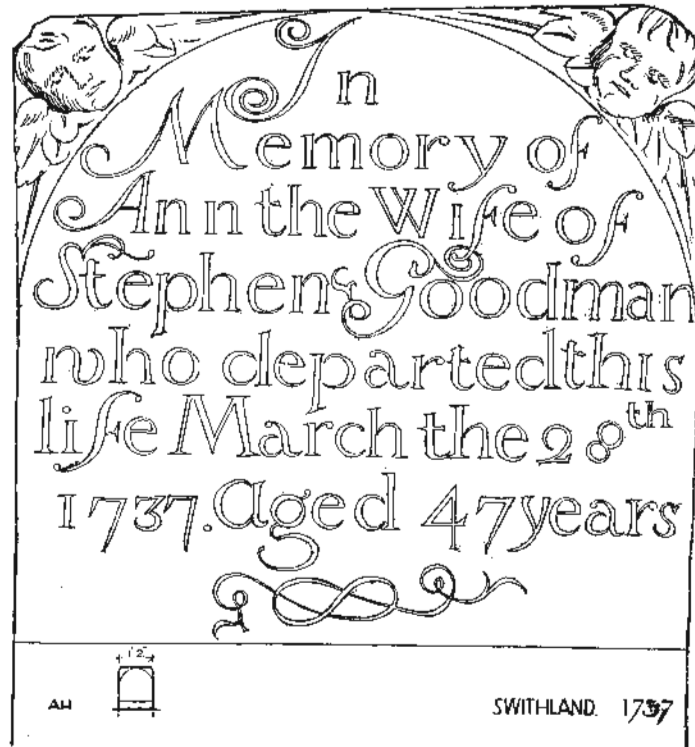 In
Memory of
Ann the Wife of
Stephen Goodman
who departed this
life March the 28th
1737. Aged 47 years
1'2"
AH
SWITHLAND. 1737